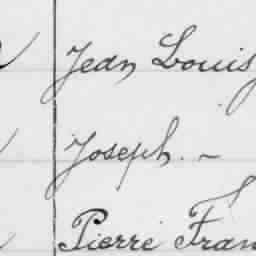 Jean Louis
Joseph. ~
Pierre Fran